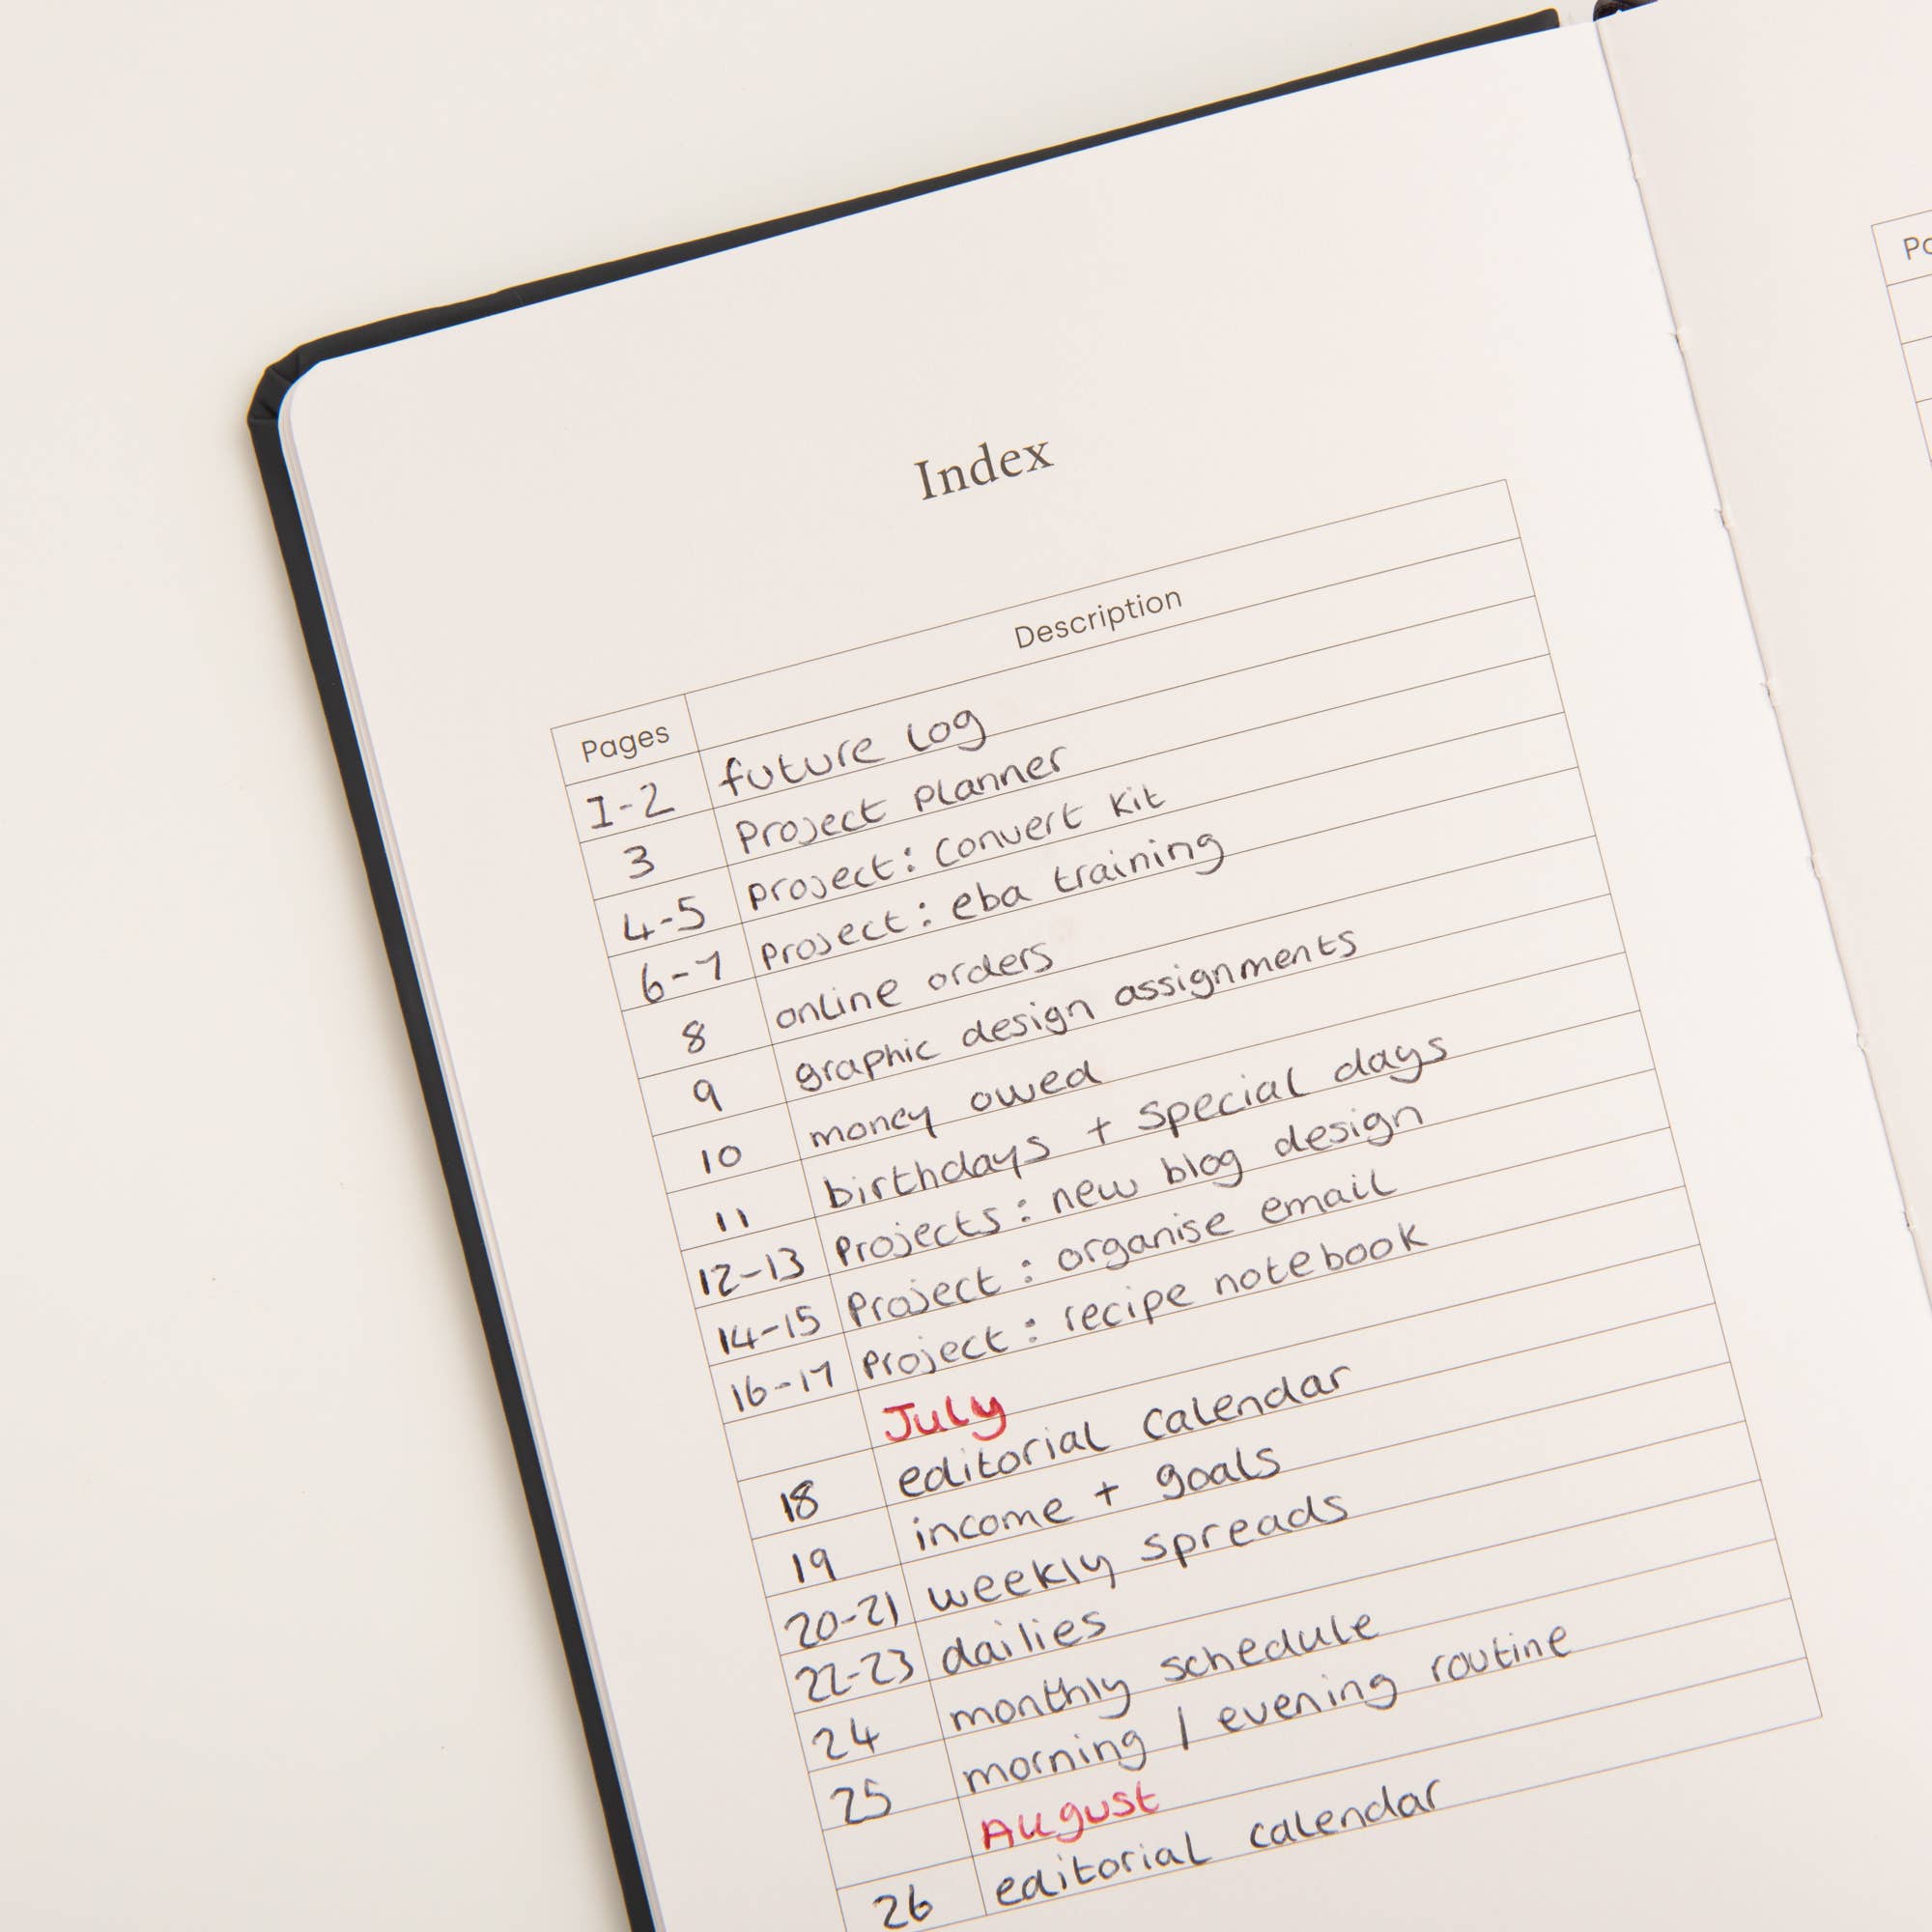 Index
Pages Description
1-2 future log
3 Project planner
4-5 project: convert kit
6-7 project: eba training
8 online orders
9 graphic design assignments
10 money owed
11 birthdays + special days
12-13 Projects: new blog design
14-15 Project: organise email
16-17 Project: recipe notebook
July
18 editorial calendar
19 income + goals
20-21 weekly spreads
22-23 dailies
24 monthly schedule
25 morning / evening routine
August
26 editorial calendar